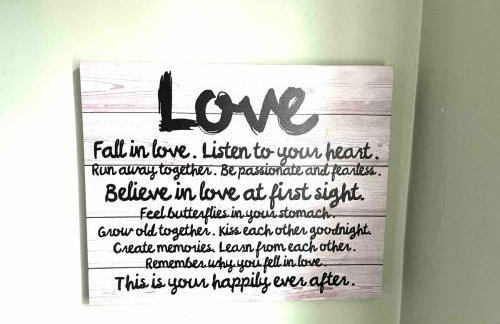 Love
Fall in love. Listen to your heart.
Run away together. Be passionate and fearless.
Believe in love at first sight.
Feel butterflies in your stomach.
Grow old together. Kiss each other goodnight.
Create memories. Learn from each other.
Remember why you fell in love.
This is your happily ever after.